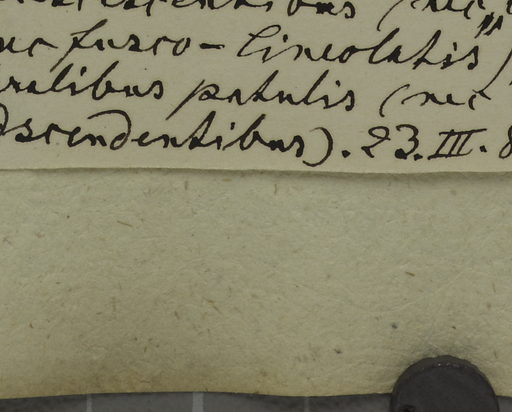 (nec
fusco-lineolatis"
patulis (nec
dscendentibus). 23. III. 8